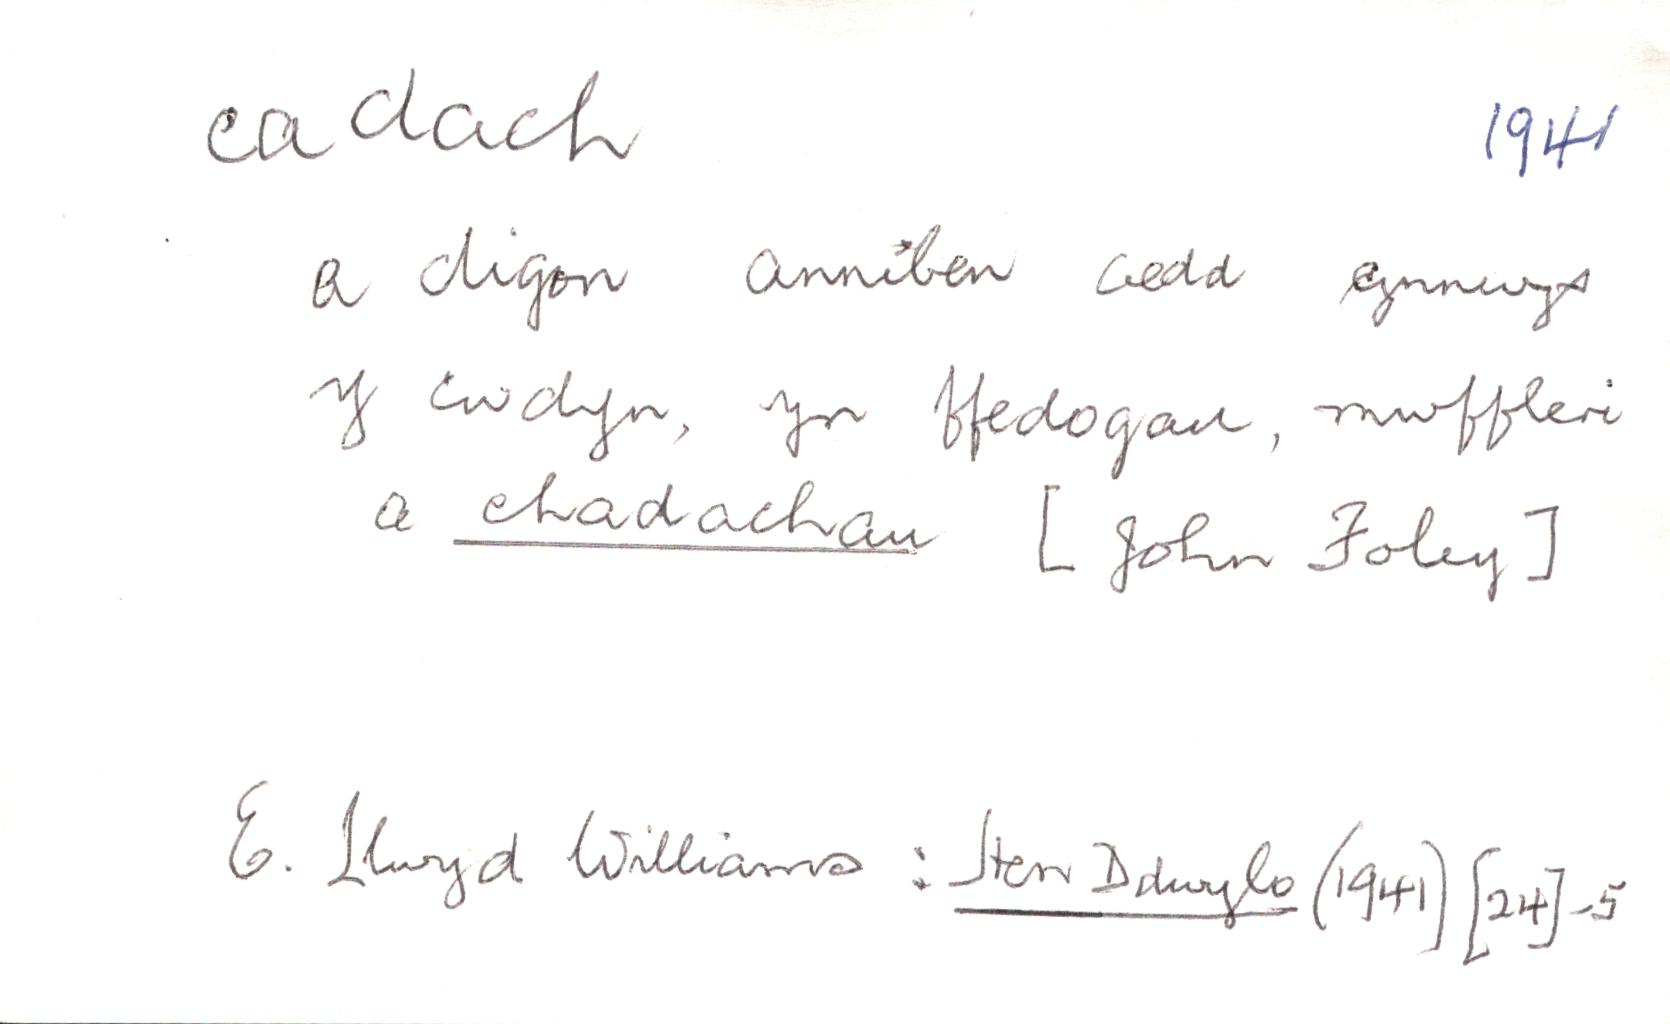 cadach 1941
a digon anniben oedd cynnwys
y cwdyn, yn ffedogau, mwffleri
a chadachau [John Foley]
E. Llwyd Williams : Hen Ddwylo (1941) [24]-5